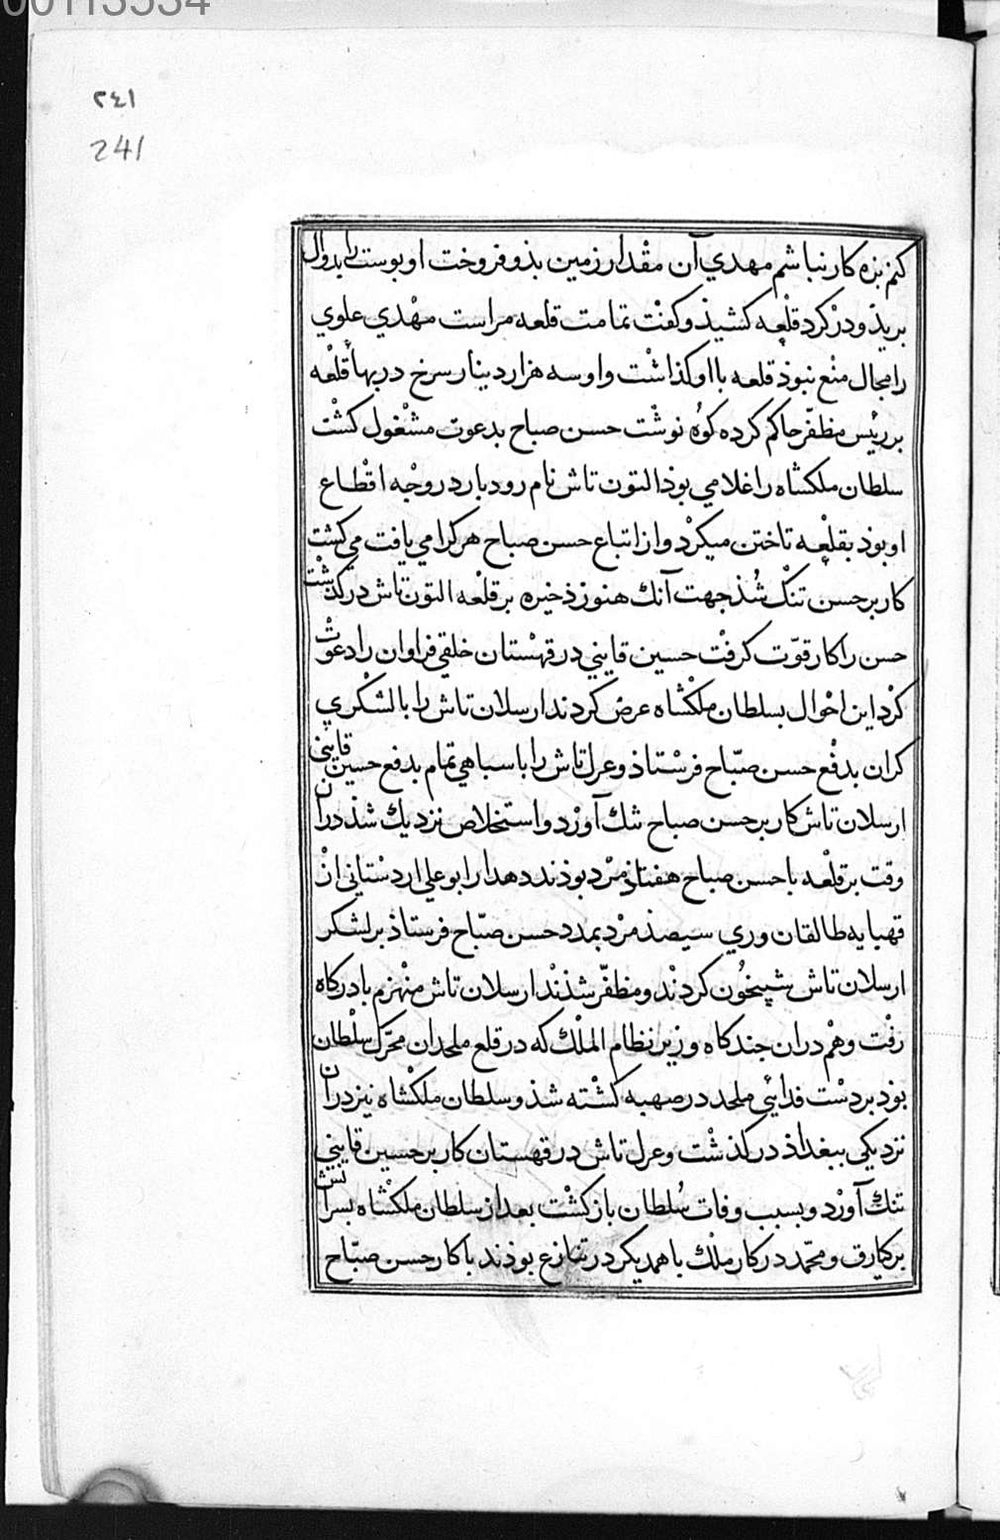 00113534
٢٤١
241
کنم بزه کار نباشم مهدي آن مقدار زمین بذو فروخت او پوست را بدوال
بریذ و درکرد قلعه کشیذ و کفت تمامت قلعه مراست مهدي علوي
را مجال منع نبوذ قلعه با او کذاشت و او سه هزار دینار سرخ در بهاء قلعه
بر رئیس مظفّر حاکم کرده کوه نوشت حسن صباح بدعوت مشغول کشت
سلطان ملکشاه را غلامي بوذ التون تاش نام رودبار در وجه اقطاع
او بوذ بقلعه تاختن میکرد و از اتباع حسن صباح هر کرا می یافت می کشت
کار بر حسن تنک شُذ جهت آنك هنوز ذخیره بر قلعه التون تاش درکذشت
حسن را کار قوّت کرفت حسین قایني در قهستان خلقي فراوان را دعوت
کرد این احوال بسلطان ملکشاه عرض کردند ارسلان تاش را با لشکري
کران بدفع حسن صبّاح فرستاذ و غزل تاش را با سباهي تمام بدفع حسین قایني
ارسلان تاش کار بر حسن صباح تنك آورد و استخلاص نزدیك شذ در آن
وقت بر قلعه با حسن صباح هفتاذ مرد بوذند دهدار ابو علي اردستاني از
قهبایه طالقان وري سیصذ مرد بمدد حسن صبّاح فرستاذ بر لشکر
ارسلان تاش شبیخُون کردند و مظفّر شذند ارسلان تاش منهزم با درکاه
رفت و هم دران چند کاه وزیر نظام الملك که در قلع ملحدان محرّك سلطان
بوذ بر دست فدائي ملحد در صهبه کشته شذ و سلطان ملکشاه نیز در آن
نزدیکي ببغداذ درکذشت و غزل تاش در قهستان کار بر حسین قایني
تنك آورد و بسبب وفات سُلطان بازکشت بعد از سلطان ملکشاه بسرانش
برکیارق و محمّد در کار ملك با همدیکر در تنازع بوذند با کار حسن صبّاح